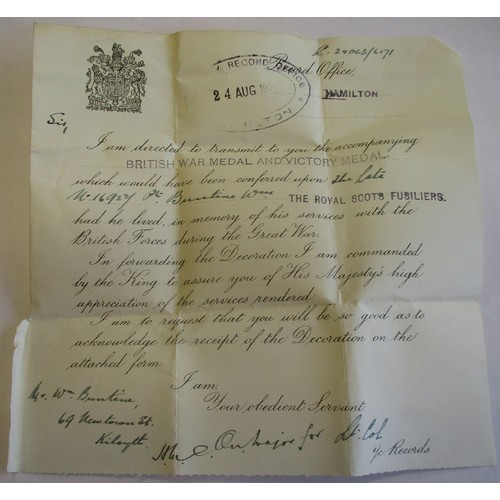 C. 24063/6171
RECORD OFFICE
Record Office,
24 AUG
HAMILTON
Sir,
I am directed to transmit to you the accompanying
BRITISH WAR MEDAL AND VICTORY MEDAL
which would have been conferred upon the late
No 16927 Pte Buntine Wm THE ROYAL SCOTS FUSILIERS.
had he lived, in memory of his services with the
British Forces during the Great War.
In forwarding the Decoration I am commanded
by the King to assure you of His Majesty's high
appreciation of the services rendered.
I am to request that you will be so good as to
acknowledge the receipt of the Decoration on the
attached form
I am,
Mr. Wm Buntine,
Your obedient Servant.
69 Newtown St.
Kilsyth.
Major for Lt. Col
i/c Records